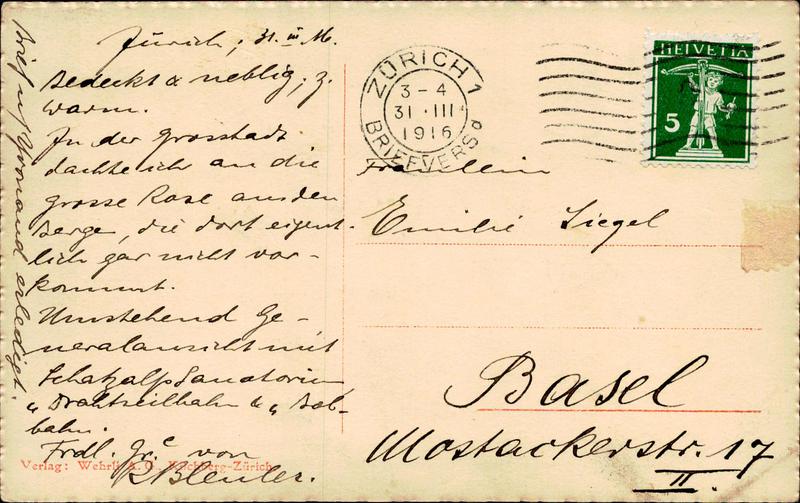 Zürich, 31. III 16.
Bedeckt & neblig, z.
warm.
In der Grosstadt
dachte ich an die
grosse Rose aus den
Berge, die dort eigent-
lich gar nicht vor-
kommt.
Umstehend Ge-
neralansicht mit
Schatzalp Sanatorium
"Drahtseilbahn & " Bob-
bahn.
Frdl. Gr. von
Bleuler.
Brief erledigt.
Verlag: Wehrli A. G., Kilchberg-Zürich
ZÜRICH 1
3-4
31.III
1916
BRIEFVERS d
HELVETIA
5
Fräulein
Emilie Siegel
Basel
Mostackerstr. 17
II.